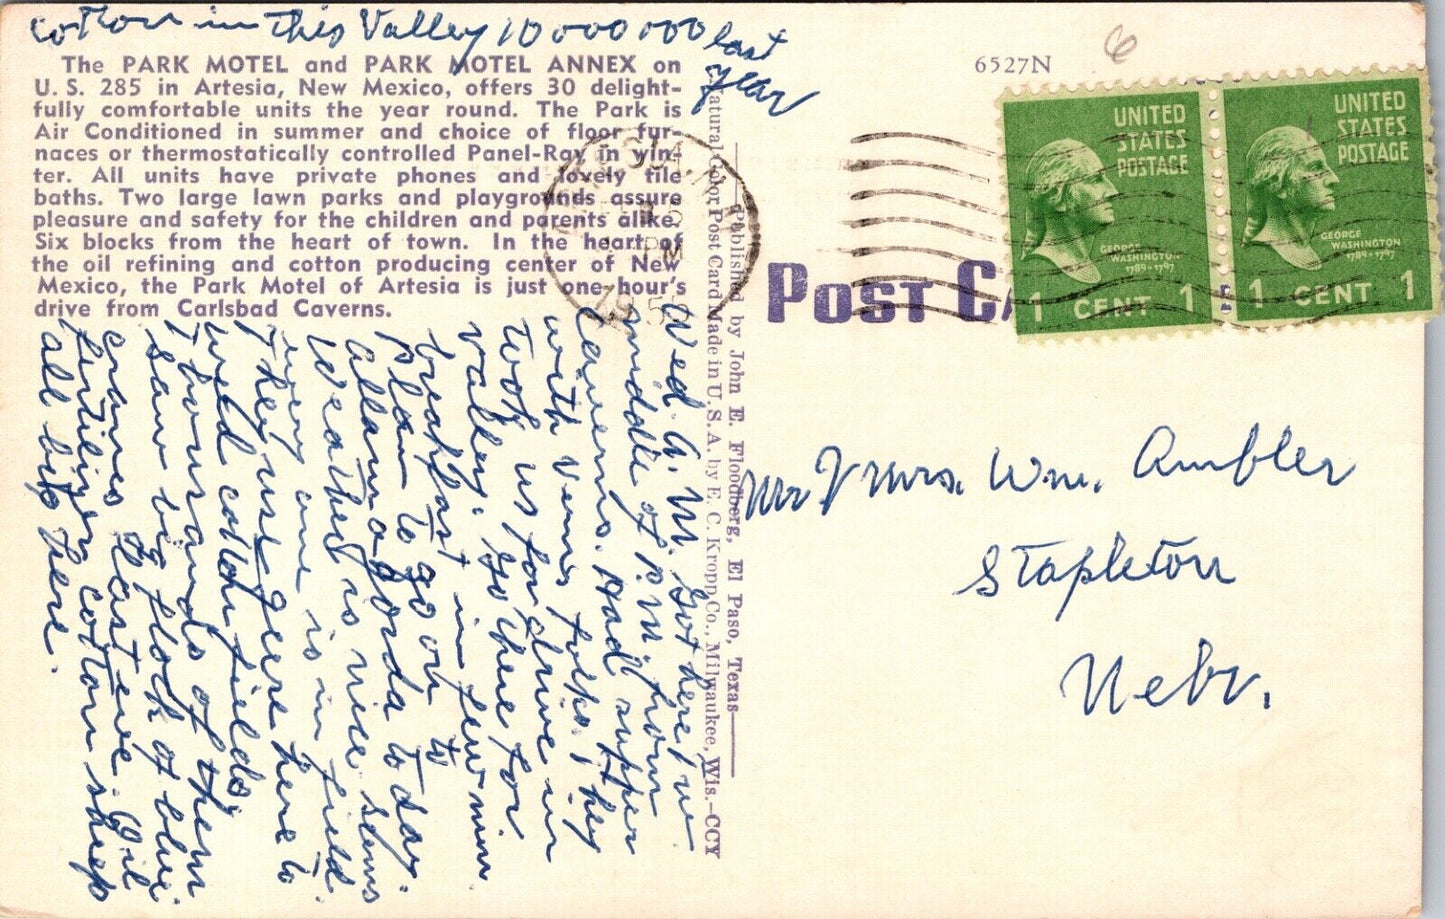 cotton in this Valley 10000000 last
year
The PARK MOTEL and PARK MOTEL ANNEX on
U. S. 285 in Artesia, New Mexico, offers 30 delight-
fully comfortable units the year round. The Park is
Air Conditioned in summer and choice of floor fur-
naces or thermostatically controlled Panel-Ray in win-
ter. All units have private phones and lovely tile
baths. Two large lawn parks and playgrounds assure
pleasure and safety for the children and parents alike.
Six blocks from the heart of town. In the heart of
the oil refining and cotton producing center of New
Mexico, the Park Motel of Artesia is just one hour's
drive from Carlsbad Caverns.
Wed. A. M. Got here in
middle of P.M. from
Caverns. Had supper
with Verns folks. They
took us for drive in
valley. Go there for
breakfast in few min.
plan to go on to
Alamogorda to day.
Weather is nice seems
every one is in field.
They use geese here to
weed cotton fields,
Thousands of them
saw big flock of blue
cranes last eve. Oil
fertilizer cotton sheep
all big here.
Published by John E. Floodberg, El Paso, Texas
Natural Color Post Card Made in U. S. A. by E. C. Kropp Co., Milwaukee, Wis.—CCY
6527N
6
UNITED
STATES
POSTAGE
GEORGE
WASHINGTON
1789-1797
1 CENT 1
UNITED
STATES
POSTAGE
GEORGE
WASHINGTON
1789-1797
1 CENT 1
PM
POST CA
Mr & Mrs. Wm. Ambler
Stapleton
Nebr.